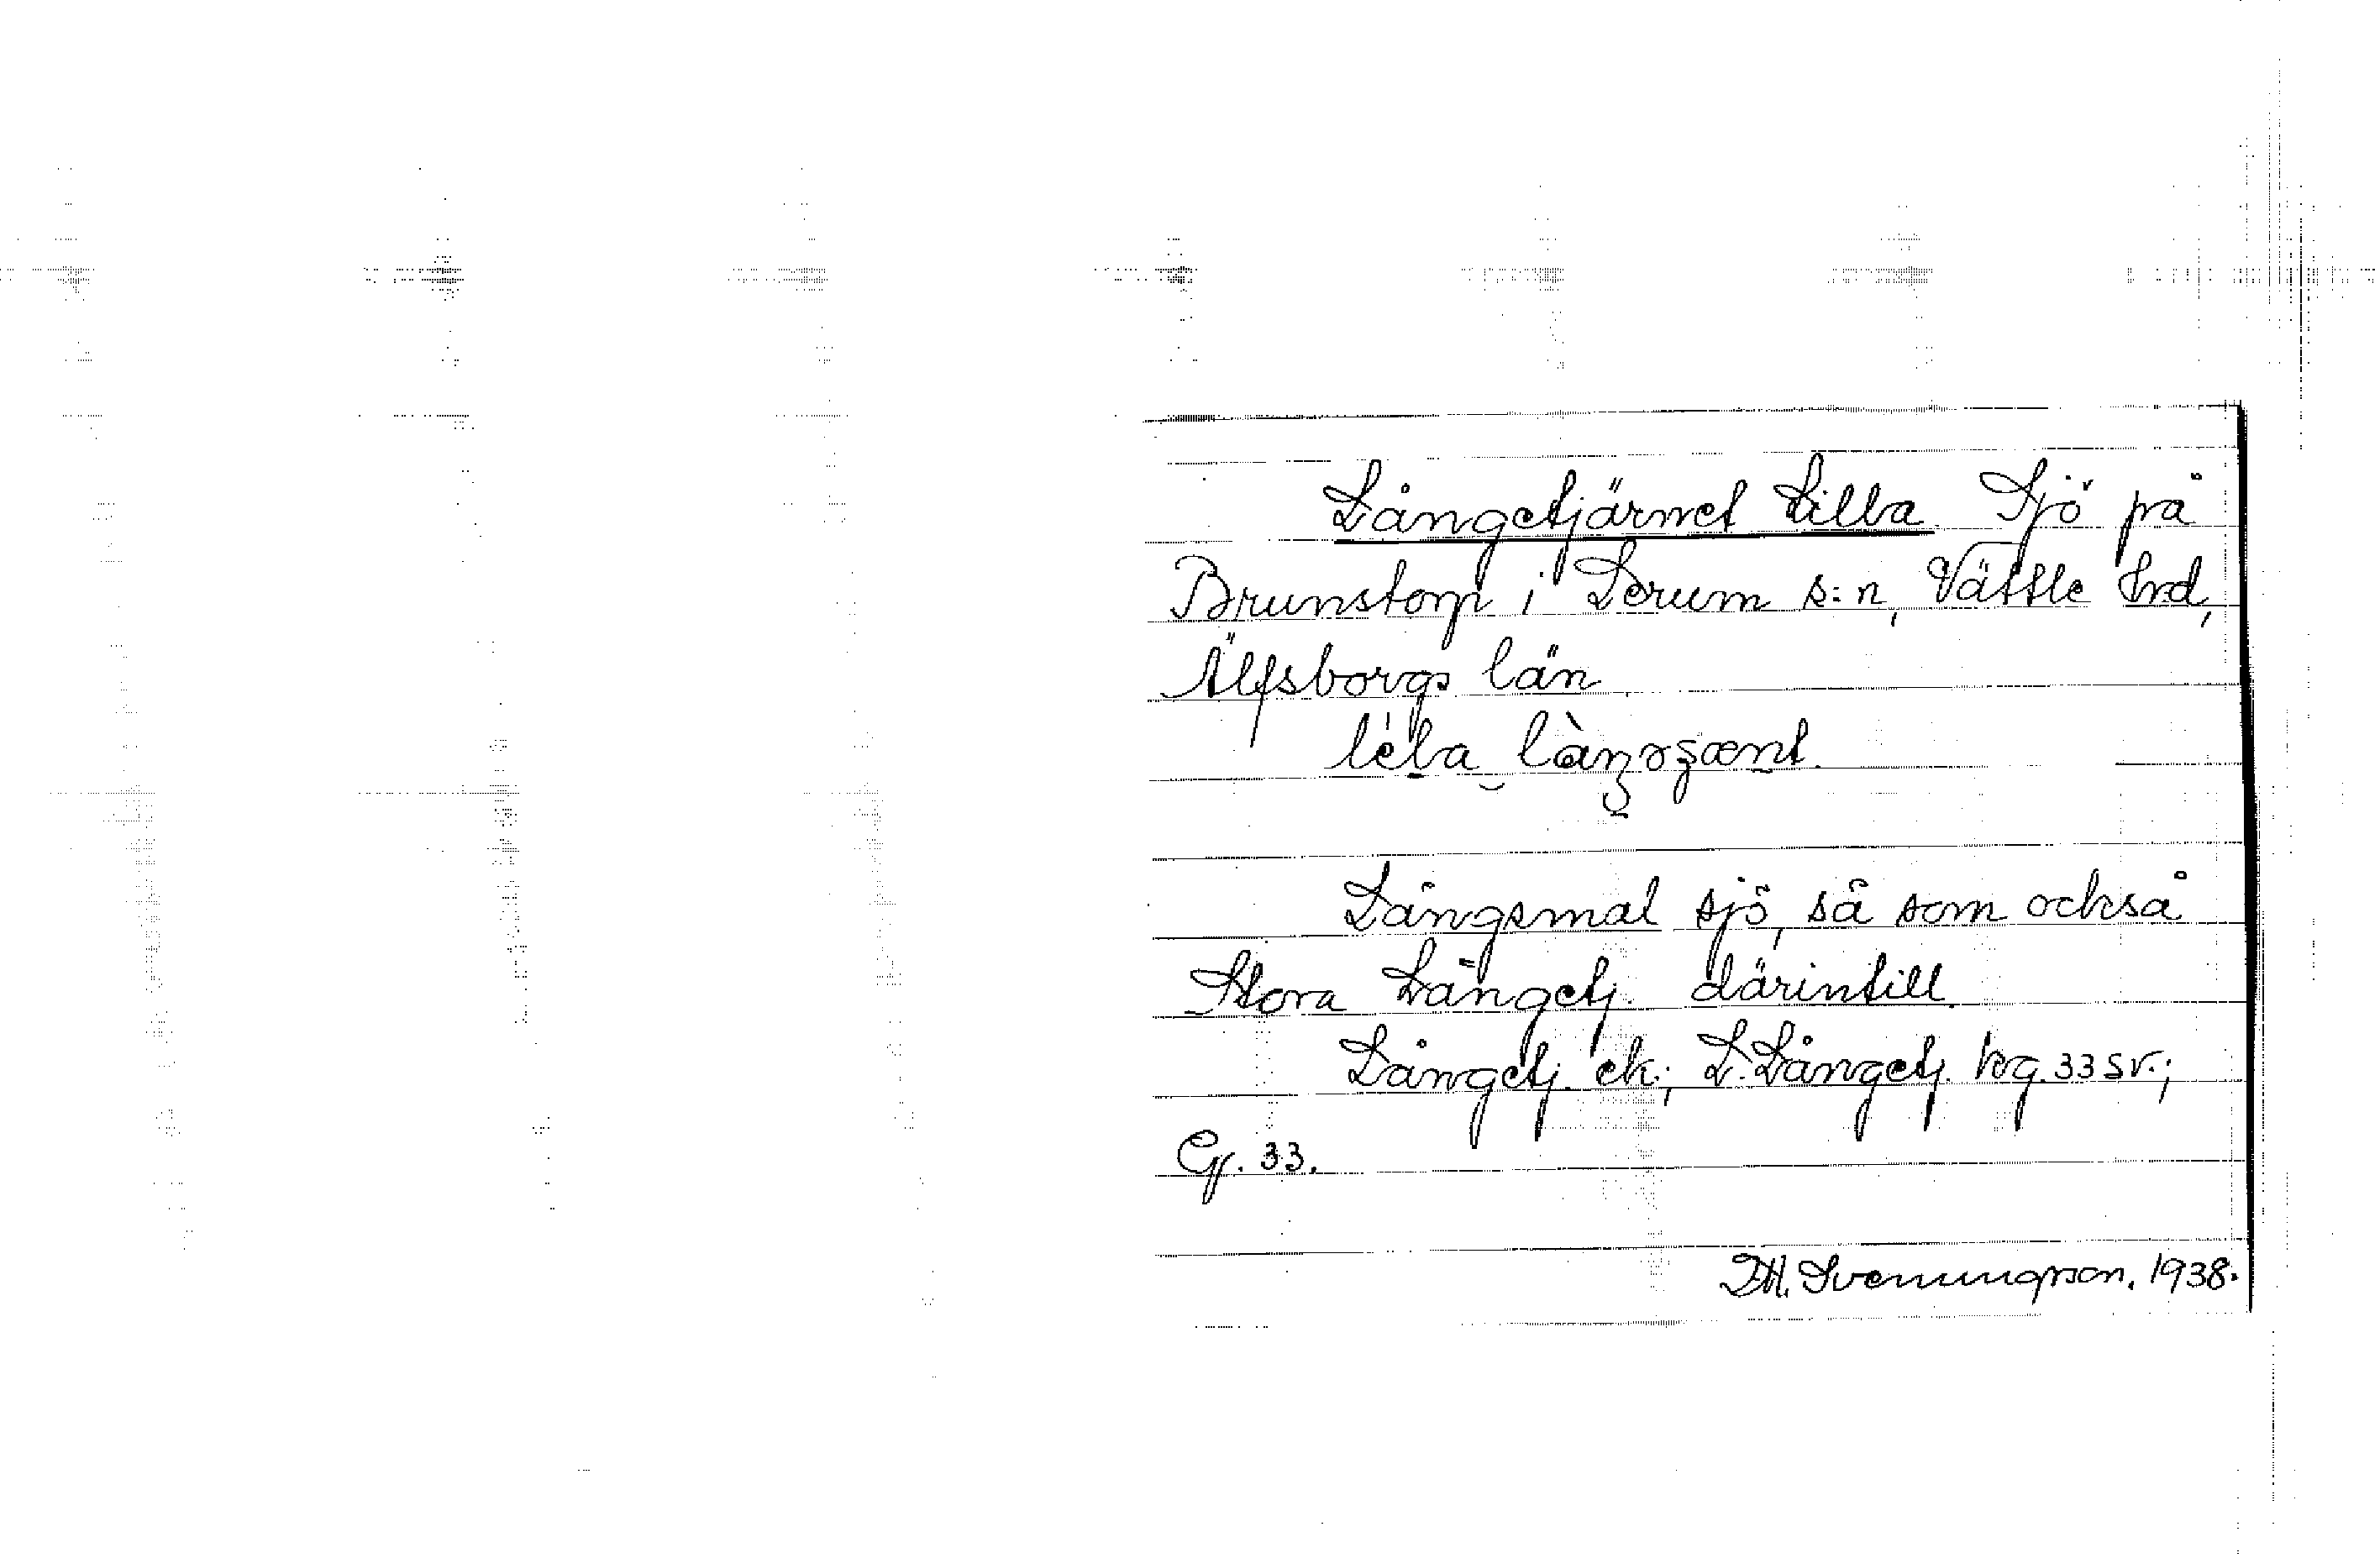 Långetjärnet Lilla. Sjö på
Brunstorp i Lerum s:n, Vättle hd,
Älfsborgs län.
Långsmal sjö, så som också
Stora Långetj. därintill.
Långetj. ek.; L. Långetj. kg. 33 sv.;
Gf. 33.
D.H. Svenungsson. 1938.